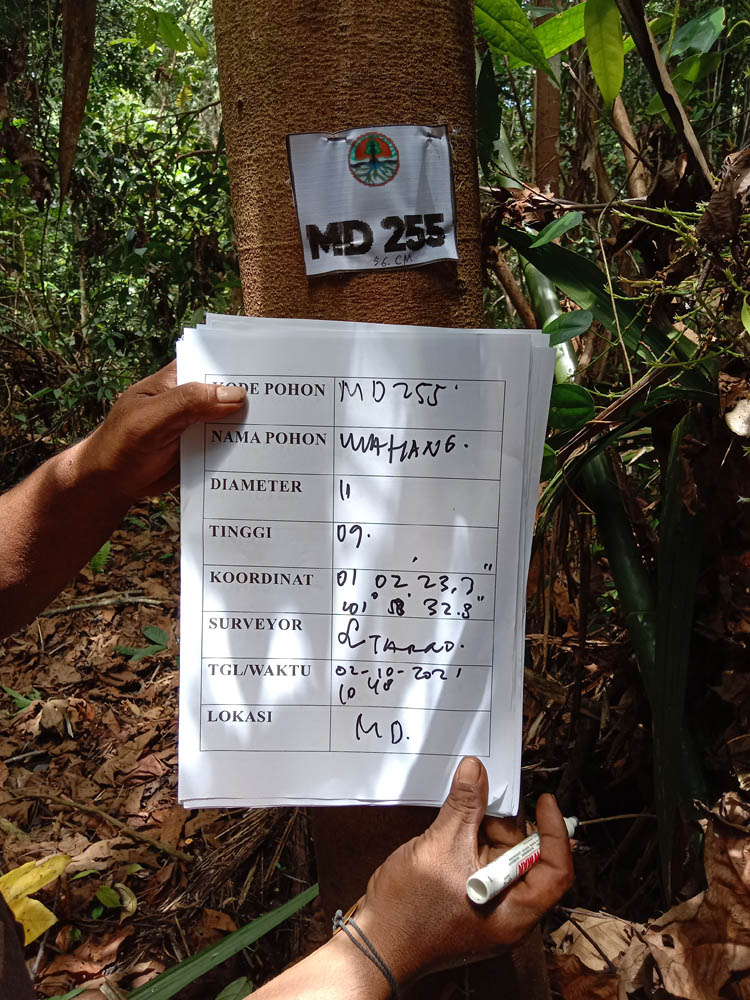 MD 255
56. CM
KODE POHON MD 255.
NAMA POHON MAHANG.
DIAMETER 11
TINGGI 09.
KOORDINAT 01 02' 23,3"
101° 58' 32.8"
SURVEYOR TARNO.
TGL/WAKTU 02-10-2021
10 48
LOKASI MD.